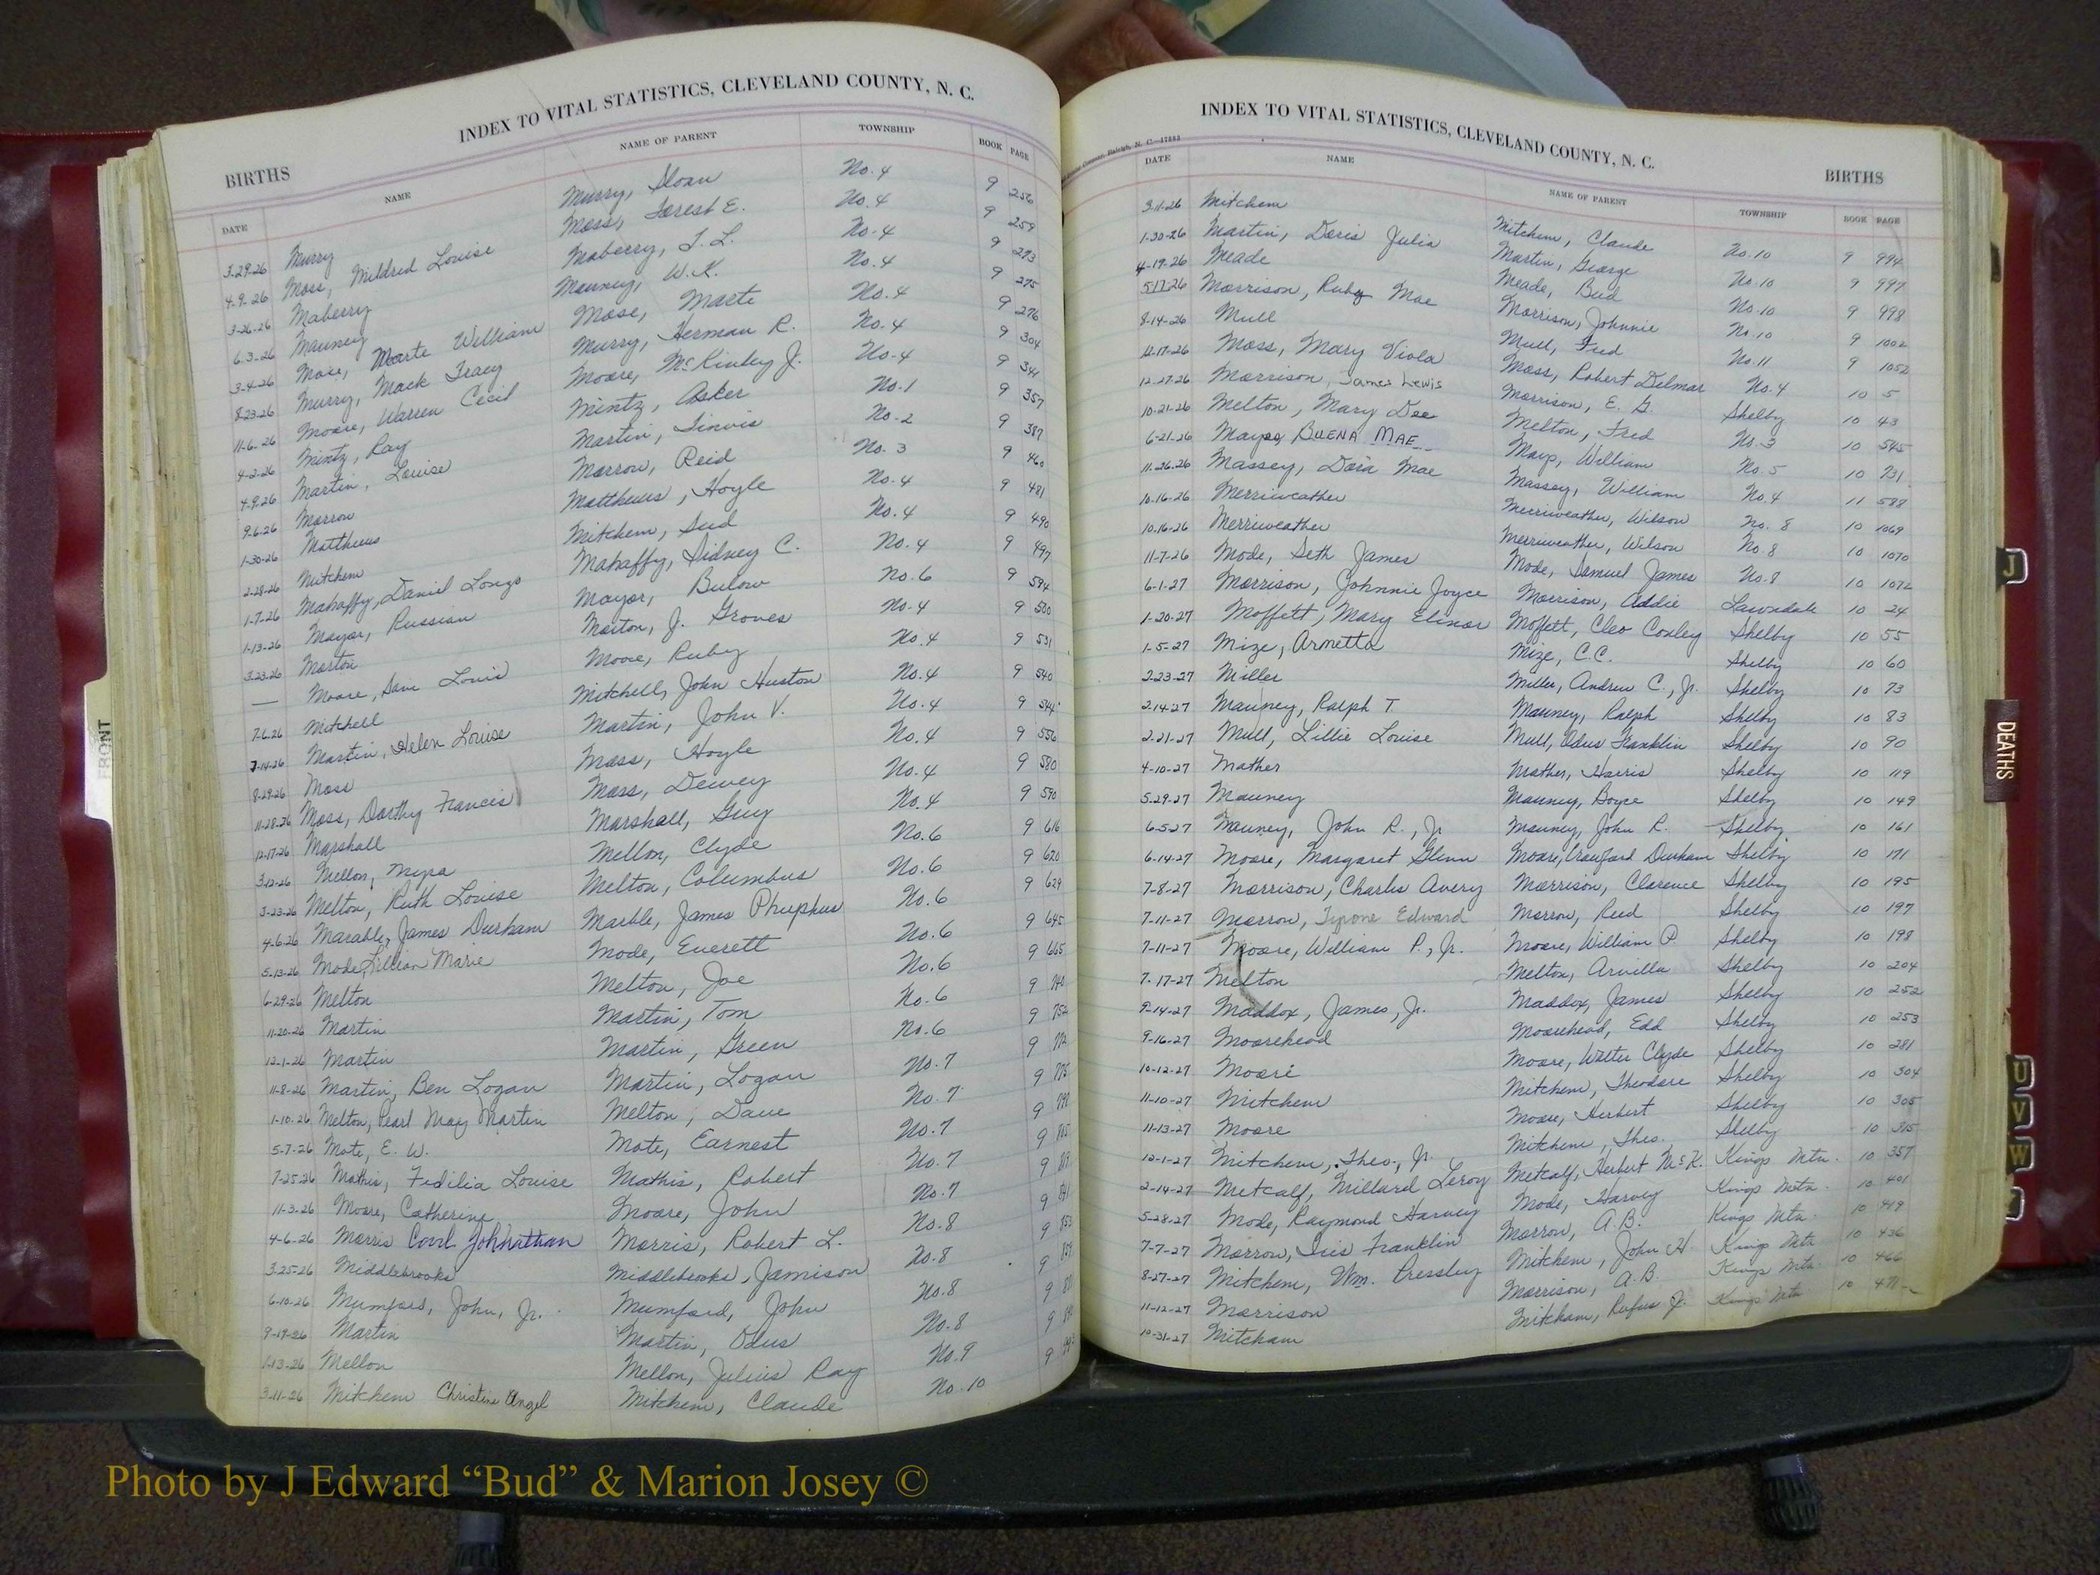 INDEX TO VITAL STATISTICS, CLEVELAND COUNTY, N. C.
BIRTHS
DATE NAME NAME OF PARENT TOWNSHIP BOOK PAGE
3-29-26 Murry Murry, Sloan No. 4 9 256
4-9-26 Moss, Mildred Louise Moss, Forest E. No. 4 9 259
3-26-26 Maberry Maberry, T. L. No. 4 9 273
6-3-26 Mauney Mauney, W. K. No. 4 9 275
3-4-26 Mose, Marte William Mose, Marte No. 4 9 276
8-23-26 Murry, Mack Tracy Murry, Herman R. No. 4 9 304
11-6-26 Moore, Warren Cecil Moore, McKinley J. No. 4 9 341
4-2-26 Mintz, Ray Mintz, Asker No. 1 9 357
4-9-26 Martin, Louise Martin, No. 2 9 387
9-6-26 Morrow Morrow, Reid No. 3 9 460
1-30-26 Matthews Matthews, Hoyle No. 4 9 481
2-28-26 Mitchem Mitchem, Sud No. 4 9 490
1-7-26 Mahaffy, Daniel Longo Mahaffy, Sidney C. No. 4 9 497
1-13-26 Mayor, Russian Mayor, Bulow No. 6 9 594
3-23-26 Morton Morton, J. Groves No. 4 9 500
— Moore, Sam Louis Moore, Ruby No. 4 9 531
7-6-26 Mitchell Mitchell, John Huston No. 4 9 540
7-14-26 Martin, Helen Louise Martin, John V. No. 4 9 544
8-29-26 Moss Moss, Hoyle No. 4 9 556
11-28-26 Moss, Dorthy Francis Moss, Dewey No. 4 9 580
12-17-26 Marshall Marshall, Guy No. 4 9 590
3-12-26 Mellon, Myra Mellon, Clyde No. 6 9 616
3-23-26 Melton, Ruth Louise Melton, Columbus No. 6 9 620
4-6-26 Marable, James Durham Marble, James Phuphus No. 6 9 629
5-13-26 Mode, Lillian Marie Mode, Everett No. 6 9 645
6-29-26 Melton Melton, Joe No. 6 9 665
11-20-26 Martin Martin, Tom No. 6 9 740
12-1-26 Martin Martin, Green No. 6 9 752
11-8-26 Martin, Ben Logan Martin, Logan No. 7 9 772
1-10-26 Melton, Pearl May Martin Melton, Dave No. 7 9
5-7-26 Mote, E. W. Mote, Earnest No. 7 9
7-25-26 Mathis, Fidilia Louise Mathis, Robert No. 7 9
11-3-26 Moore, Catherine Moore, John No. 7 9
4-6-26 Morris Covil Johnathan Morris, Robert L. No. 8 9
3-25-26 Middlebrooks Middlebrooks, Jamison No. 8 9
6-10-26 Mumford, John, Jr. Mumford, John No. 8 9
9-19-26 Martin Martin, Odus No. 8 9
1-13-26 Mellon Mellon, Julius Ray No. 9 9
3-11-26 Mitchem Christine Angel Mitchem, Claude No. 10
FRONT
INDEX TO VITAL STATISTICS, CLEVELAND COUNTY, N. C.
Raleigh, N. C.—17883
BIRTHS
DATE NAME NAME OF PARENT TOWNSHIP BOOK PAGE
3-11-26 Mitchem Mitchem, Claude No. 10 9 994
1-30-26 Martin, Doris Julia Martin, George No. 10 9 997
4-19-26 Meade Meade, Bud No. 10 9 998
5-17-26 Morrison, Ruby Mae Morrison, Johnnie No. 10 9 1002
8-14-26 Mull Mull, Fred No. 11 9 1052
12-17-26 Moss, Mary Viola Moss, Robert Delmar No. 4 10 5
12-27-26 Morrison, James Lewis Morrison, E. G. Shelby 10 43
10-21-26 Melton, Mary Dee Melton, Fred No. 3 10 545
6-21-26 Mayes BUENA MAE Mays, William No. 5 10 731
11-26-26 Massey, Dora Mae Massey, William No. 4 11 588
10-16-26 Merriweather Merriweather, Wilson No. 8 10 1069
10-16-26 Merriweather Merriweather, Wilson No. 8 10 1070
11-7-26 Mode, Seth James Mode, Samuel James No. 8 10 1072
6-1-27 Morrison, Johnnie Joyce Morrison, Addie Lawndale 10 24
1-20-27 Moffett, Mary Elinor Moffett, Cleo Conley Shelby 10 55
1-5-27 Mize, Arnetta Mize, C.C. Shelby 10 60
2-23-27 Miller Miller, Andrew C., Jr. Shelby 10 73
2-14-27 Mauney, Ralph T. Mauney, Ralph Shelby 10 83
2-21-27 Mull, Lillie Louise Mull, Odus Franklin Shelby 10 90
4-10-27 Mather Mather, Harris Shelby 10 119
5-29-27 Mauney Mauney, Boyce Shelby 10 149
6-5-27 Mauney, John R., Jr. Mauney, John R. Shelby 10 161
6-14-27 Moore, Margaret Glenn Moore, Crawford Durham Shelby 10 171
7-8-27 Morrison, Charles Avery Morrison, Clarence Shelby 10 195
7-11-27 Morrow, Tyrone Edward Morrow, Reid Shelby 10 197
7-11-27 Moore, William P., Jr. Moore, William P Shelby 10 198
7-17-27 Melton Melton, Arvilla Shelby 10 204
9-14-27 Maddox, James, Jr. Maddox, James Shelby 10 252
9-16-27 Moorehead Moorehead, Edd Shelby 10 253
10-12-27 Moore Moore, Walter Clyde Shelby 10 281
11-10-27 Mitchem Mitchem, Theodore Shelby 10 304
11-13-27 Moore Moore, Herbert Shelby 10 305
12-1-27 Mitchem, Theo., Jr. Mitchem, Theo. Shelby 10 315
2-14-27 Metcalf, Millard Leroy Metcalf, Herbert McK. Kings Mtn. 10 357
5-28-27 Mode, Raymond Harvey Mode, Harvey Kings Mtn. 10 401
7-7-27 Morrow, Iris Franklin Morrow, A.B. Kings Mtn. 10 419
8-27-27 Mitchem, Wm. Pressley Mitchem, John H Kings Mtn 10 436
11-12-27 Morrison Morrison, A.B. Kings Mtn. 10 466
10-31-27 Mitcham Mitcham, Rufus J. Kings Mtn 10 471
J
DEATHS
U
V
W
Photo by J Edward “Bud” & Marion Josey ©